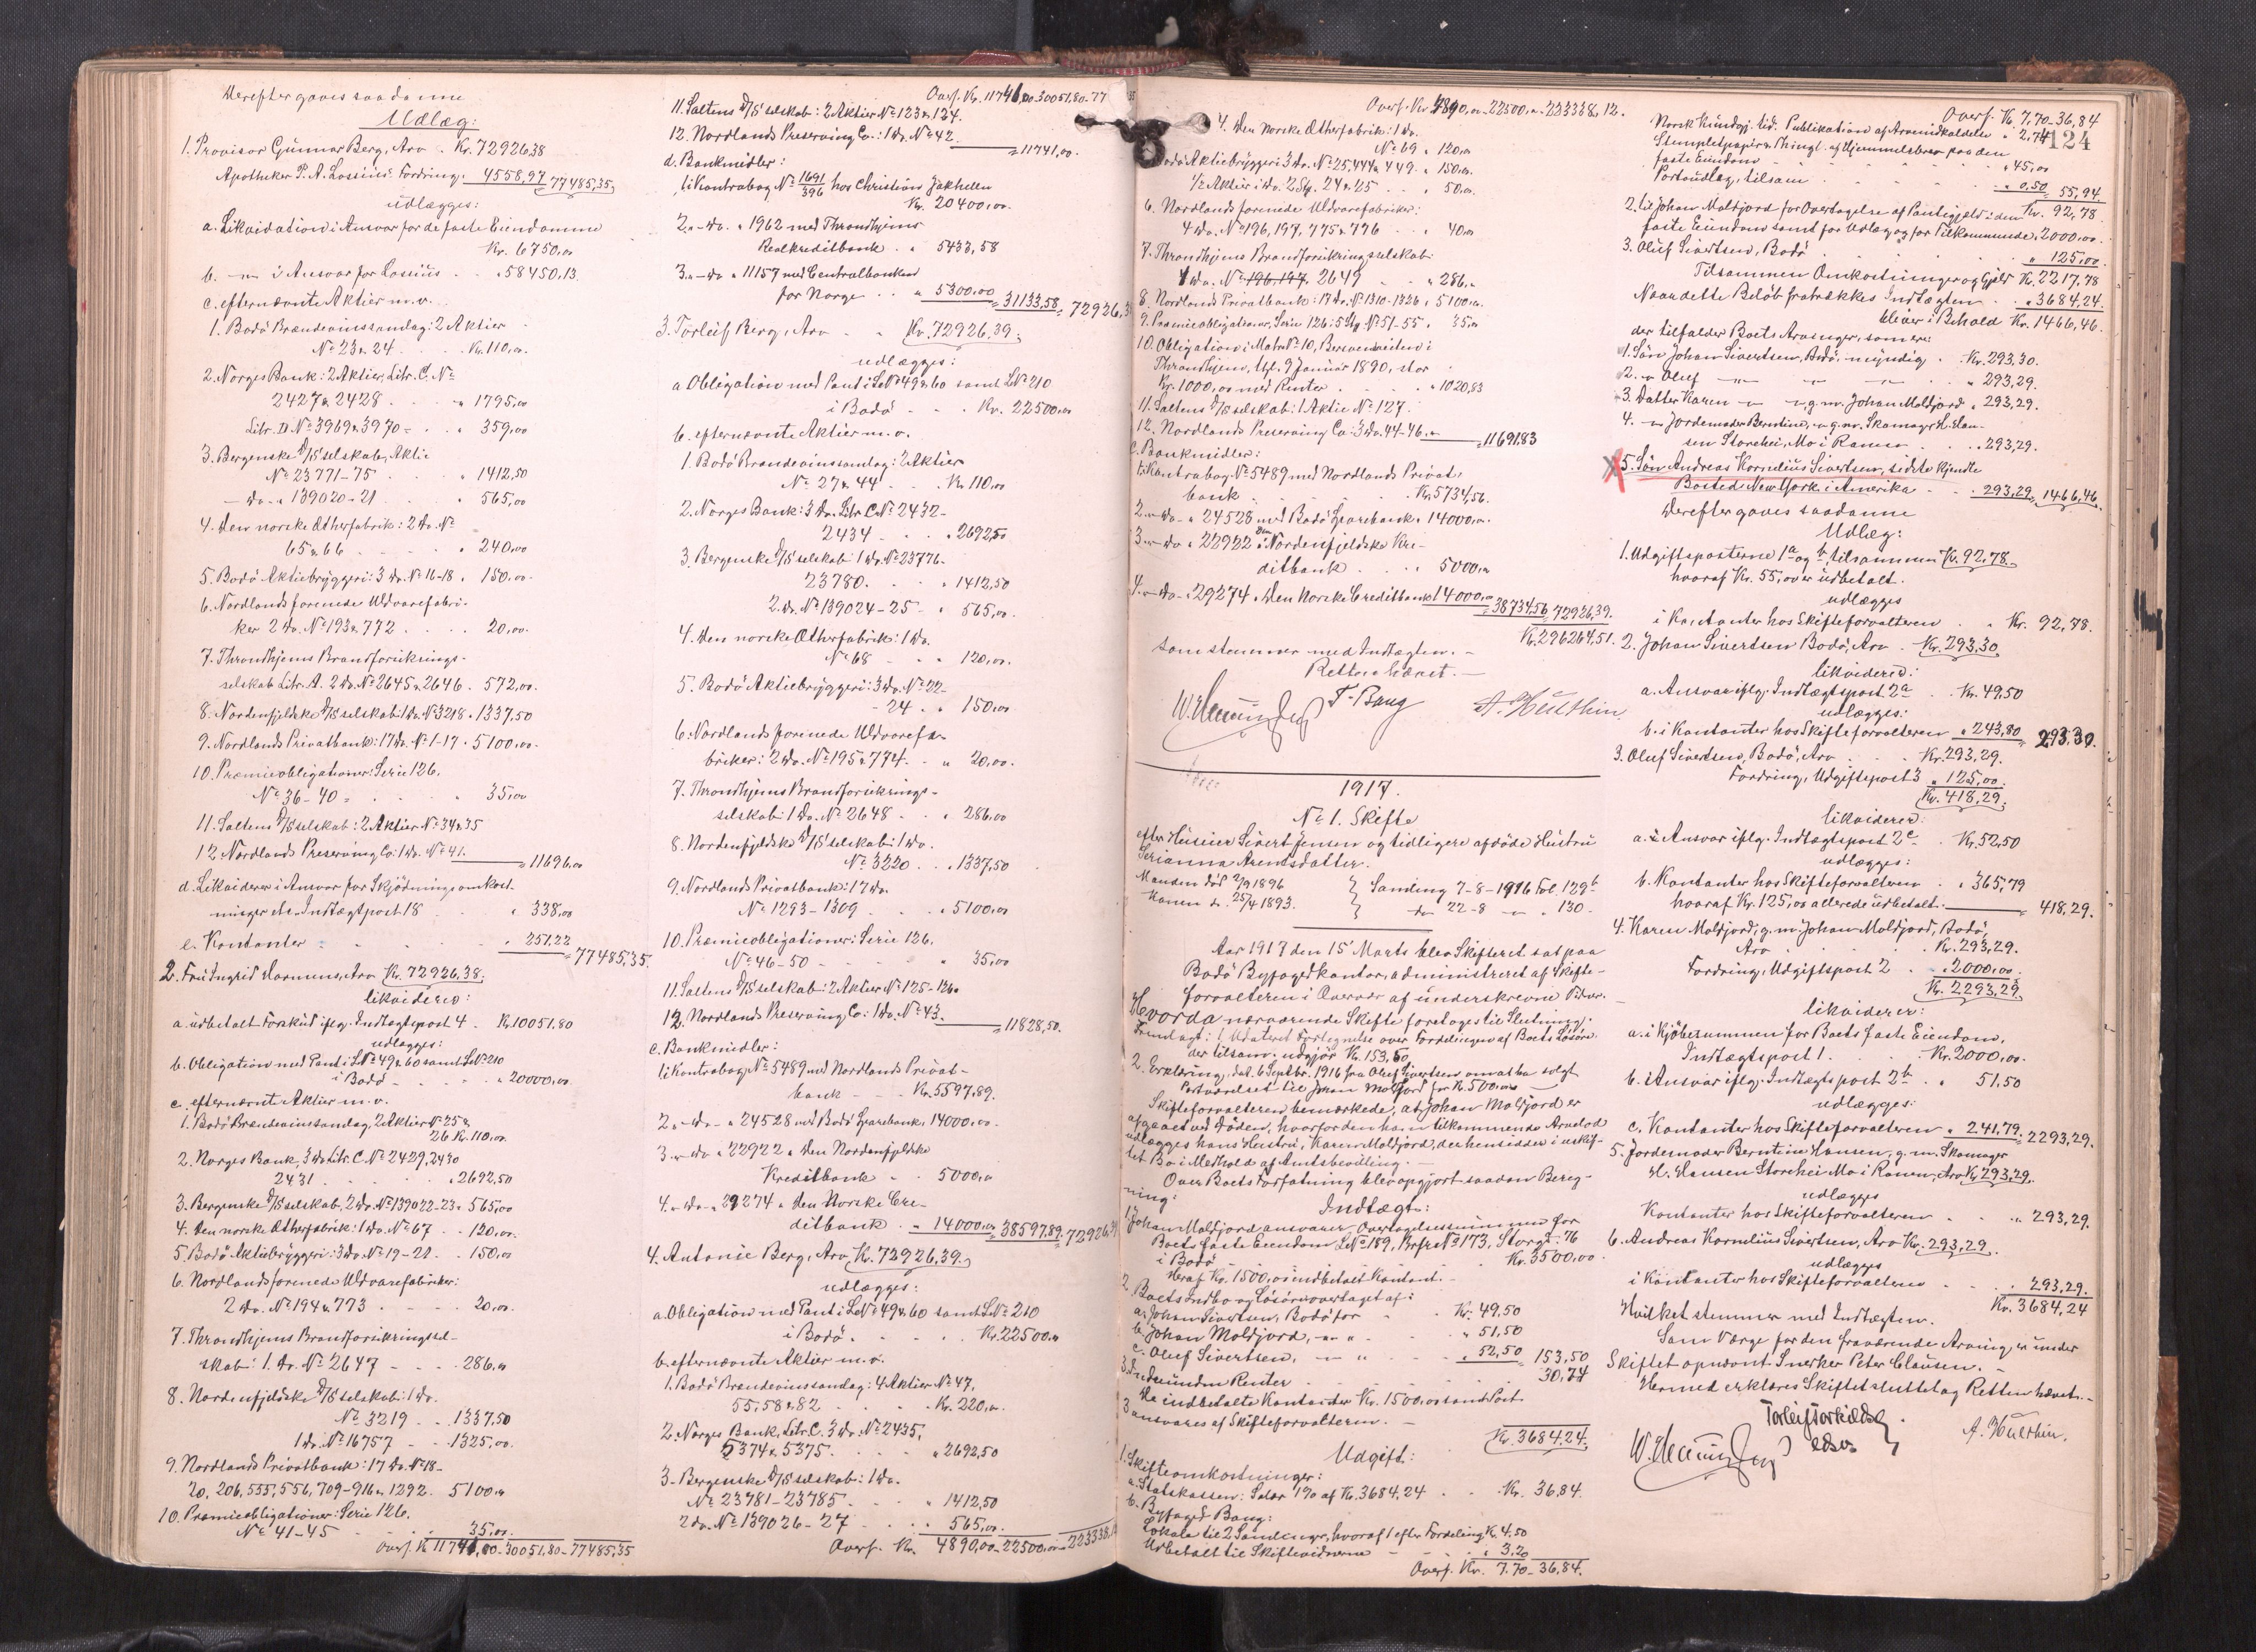 Derefter gaves saadanne
Udlæg:
1. Provisor Gunnar Berg, Arv . Kr. 72926,38
Apotheker P. A. Lossius' Fordring . 4558,97 77485,35
udlægges:
a. Likvidation i Ansvar for de faste Eiendomme
Kr. 6750,00
b. —"— i Ansvar for Lossius . . " 58450,13
c. efternævnte Aktier m.v.
1. Bodö Brændevinssamlag: 2 Aktier
No 23 & 24 . . . Kr. 110,00
2. Norges Bank: 2 Aktier, Litr. C. No
2427 & 2428 . . . " 1795,00
Litr. D No 3969 & 3970 = . . " 359,00
3. Bergenske D/S selskab, Aktie
No 23771-75 . . . " 1412,50
— do. " 139020-21 . . " 565,00
4. Den norske Ætherfabrik: 2 do. No
65 & 66 . . . " 240,00
5. Bodö Aktiebryggeri: 3 do. No 16-18 " 150,00
6. Nordlands forenede Uldvarefabri-
ker 2 do. No 193 & 772 . . . . 20,00
7. Throndhjems Brandforsikrings-
selskab Litr. A. 2 do. No 2645 & 2646 . 572,00
8. Nordenfjeldske D/S selskab: 1 do. No 3218 " 1337,50
9. Nordlands Privatbank: 17 do. No 1-17 . 5100,00
10. Præmieobligationer: Serie 126.
No 36-40 = . . . " 35,00
11. Saltens D/S selskab: 2 Aktier No 34 & 35
12 Nordlands Preserving Co: 1 do. No 41. = 11696,00
d. Likviderer i Ansvar for Skjödningsomkost-
ninger etc. Indtægtpost 18 . . " 338,00
e. Kontanter . . . . " 251,22 = 77485,35.
2. Fru Ingrid Hormann, Arv Kr. 72926,38.
likviderer:
a. udbetalt Forskud iflg. Indtægtspost 4 . Kr. 10051,80
udlægges:
b. Obligation med Pant i LNo 49 & 60 samt LNo 210
i Bodö . . . . " 20000,00
c. efternævnte Aktier m.v.
1. Bodö Brændevinssamlag, 2 Aktier No 25 &
26 Kr. 110,00
2. Norges Bank, 3 do. Litr. C. No 2429, 2430
2431 . . . . " 2692,50
3. Bergenske D/S selskab, 2 do. No 139022-23 " 565,00
4. Den norske Ætherfabrik: 1 do. No 67 . . 120,00
5. Bodö Aktiebryggeri: 3 do. No 19-21 . . 150,00
6. Nordlands forenede Uldvarefabriker:
2 do. No 194 & 773 . . . 20,00
7. Throndhjems Brandforsikringssel-
skab: 1. do. No 2647 - - - 286,00
8. Nordenfjeldske D/S selskab: 1 do.
No 3219 . . 1337,50
1 do. No 16757 - - 1325,00
9. Nordlands Privatbank: 17 do. No 18-
20, 206, 555, 556, 709-916 & 1292. 5100,00
10. Præmieobligationer: Serie 126.
No 41-45 . . . 35,00
Overf. Kr. 11741,00 - 30051,80 - 77485,35
Overf. Kr. 11741,00 - 30051,80 - 77
11. Saltens D/S selskab: 2 Aktier No 123 & 124.
12. Nordlands Preserving Co.: 1 do. No 42. = 11741,00.
d. Bankmidler:
1. i Kontrabog No 1691/396 hos Christian Jakhelln
Kr. 20400,00
2. " - do. " 1962 med Throndhjems
Realkreditbank . " 5433,58
3. " - do " 11157 med Centralbanken
for Norge . . " 5300,00 = 31133,58 = 72926,3
3. Torleif Berg, Arv - " Kr. 72926,39.
udlægges:
a Obligation med Pant i LNo 49 & 60 samt LNo 210
i Bodö - - . Kr. 22500,00
b. efternævnte Aktier m.v.
1. Bodö Brændevinssamlag: 2 Aktier
No 27 & 44 . . Kr. 110,00
2. Norges Bank: 3 do. Litr. C No 2432-
2434 . . . " 2692,50
3. Bergenske D/S selskab: 1 do. No 23776-
23780. . . " 1412,50
2. do. No 139024-25 - " 565,00
4. Den norske Ætherfabrik: 1 do.
No 68 - - " 120,00.
5. Bodö Aktiebryggeri: 3 do. No 22-
- 24 . " 150,00
6. Nordlands forenede Uldvarefa-
briker: 2 do. No 195 & 774. - " 20,00.
7. Throndhjems Brandforsikrings-
selskab: 1 do. No 2648 - . " 286,00
8. Nordenfjeldske D/S selskab: 1 do.
No 3220 . . . 1337,50
9. Nordlands Privatbank: 17 do.
No 1293-1309 . . . " 5100,00
10. Præmieobligationer: Serie 126.
No 46-50 - - - " 35,00
11. Saltens D/S selskab: 2 Aktier No 125-126
12. Nordlands Preserving Co: 1 do. No 43. = 11828,50.
c. Bankmidler:
1. i Kontrabog No 5489 med Nordlands Privat-
bank - - - Kr. 5597,89.
2. " - do - " 24528 med Bodö Sparebank, 14000,00
3. " - do " 22922 " den Nordenfjeldske
Kreditbank - - 5000,00
4. " - do - " 29274 " den Norske Cre-
ditbank . " 14000,00 = 38597,89. 72926,39
4. Antonie Berg, Arv Kr. 72926,39.
udlægges:
a. Obligation med Pant i LNo 49 & 60 samt LNo 210
i Bodö . . . . Kr. 22500,00
b. efternævnte Aktier m.v.
1. Bodö Brændevinssamlag: 4 Aktier No 47,
55, 58 & 82 . . . Kr. 220,00
2. Norges Bank, Litr. C. 3 do. No 2435,
5374 & 5375. . . . " 2692,50
3. Bergenske D/S selskab: 1 do.
No 23781-23785 . . . " 1412,50
2 do. No 139026-27 . . . " 565,00
Overf. Kr. 4890,00 - 22500,00 - 223338,12
Overf. Kr. 4890,00 - 22500,00 - 223338,12.
4. Den Norske Ætherfabrik: 1 do.
No 69 " 120,00
Bodö Aktiebryggeri: 3 do. No 25, 444 & 449 . " 150,00
1/2 Aktier i do. 2 Stg. 24 & 25 . . " 50,00
6. Nordlands forenede Uldvarefabriker:
4 do. No 196, 197, 775 & 776 . . " 40,00
7. Throndhjems Brandforsikringsselskab
1 do. No 196, 197. 2649 - - " 286,"
8. Nordlands Privatbank: 17 do. No 1310-1326 " 5100,00
9. Præmieobligationer, Serie 126: 5 Stg No 51-55 . 35,00
10. Obligation i Matr. No 10, i
Throndhjem, tgl. 9 Januar 1890, stor
Kr. 1000,00 med Renter . . . " 1020,83
11. Saltens D/S selskab: 1 Aktie No 127.
12. Nordlands Preserving Co: 3 do. 44-46 = 11691,83
c. Bankmidler:
1. i Kontrabog No 5489 med Nordlands Privat-
bank . . . . Kr. 5734,56.
2. " - do - " 24528 med Bodö Sparebank " 14000,00
3. " - do " 22922 " Den Nordenfjeldske Kre-
ditbank . . . " 5000,00
4. " - do - " 29274 " den Norske Creditbank 14000,00 = 38734,56 = 72926,39.
Kr. 296264,51.
som stemmer med Indtægten. -
Retten hævet. -
T. Bang
A. Hulthin
1917.
No 1. Skifte
efter Husmier Sivert Jensen og tidligere afdöde Hustru
Serianna Arentsdatter.
Manden död 2/9 1896 } Samling 7-8-1916 Fol 129b
Konen d. 25/4 1893. } do 22-8 — " . 130 -
Aar 1917 den 15' Marts blev Skifteret sat paa
Bodö Byfogedkontor, administreret af Skifte-
forvalteren i Overvær af underskrevne Vidner. -
Hvorda nærværende Skifte foretoges til Slutning.
Fremlagt: 1. Udateret Fortegnelse over Fordelingen af Boets Lösöre
der tilsam. udgjör Kr. 153,50
2. Erklæring, dat. 6 Septbr. 1916 fra Oluf Sivertsen om at ha solgt
til Johan Moldjord for Kr. 500,00
Skifteforvalteren bemærkede, at Johan Moldjord er
afgaaet ved Döden, hvorfor den ham tilkommende Arvelod
udlægges hans Hustru, Karen Moldjord, der hensidder i uskif-
tet Bo i Medhold af Amtsbevilling. -
Over Boets Forfatning blev opgjort saadan Bereg-
ning:
Indtægt:
1. Johan Moldjord ansvarer Overtagelsessummen for
Boets faste Eiendom LNo 159, Brfr No 173, Storgt. 76
i Bodö . . . . Kr. 3500,00
Heraf Kr. 1500,00 indbetalt kontant. -
2. Boets Indbo og Lösöre overtaget af:
a. Johan Sivertsen, Bodö for . Kr. 49,50
b. Johan Moldjord, - " - " . . . " 51,50
c. Oluf Sivertsen, - " . . " 52,50 = 153,50
3. Indvundne Renter . . . . 30,74
De indbetalte Kontanter Kr. 1500,00 samt Post
3 ansvares af Skifteforvalteren. -
Kr. 3684,24.
Udgift:
1. Skifteomkostninger:
a. Statskassen: Salær 1% af Kr. 3684,24 . . . Kr. 36,84.
b. Byfoged Bang:
Lokale til 2 Samlinger, hvoraf 1 efter Fordeling Kr. 4,50
Udbetalt til Skiftevidnerne - - " 3,20
Overf. Kr. 7,70 - 36,84.
Overf. Kr. 7,70 - 36,84
124
Norsk Kundgj. tid. Publikation af Arveindkaldelse " 2,74
Stempletpapir & Thingl. af Hjemmelsbrev paa den
faste Eiendom - . . . . " 45,00
Portoudlæg, tilsam . . . . " 0,50 = 55,94.
Kr. 92,78.
2. til Johan Moldjord for Overtagelse af Pantegjæld i den
faste Eiendom samt for Udlæg og for Tilkommende, 2000,00.
3. Oluf Sivertsen, Bodö . . . . " 125,00.
Tilsammen Omkostninger og Gjæld Kr. 2217,78
Naar dette Belöb fratrækkes Indtægten . . " 3684,24.
bliver i Behold Kr. 1466,46.
der tilfalder Boets Arvinger, som er:
1. Sön Johan Sivertsen, Bodö, myndig . Kr. 293,30.
2. " Oluf —"— —"— —"— . " 293,29.
3. Datter Karen —"— —"—, g.m. Johan Moldjord " 293,29.
4. —"— Jordemoder Berntine, —"— g.m. Skomager H. Han-
sen Storehei, Mo i Ranen . . . " 293,29.
X 5. Sön Andreas Kornelius Sivertsen, sidste kjendte
Bosted New York i Amerika . . . 293,29 = 1466,46.
Derefter gaves saadanne
Udlæg:
1. Udgiftsposterne 1a og b, tilsammen Kr. 92,78.
hvoraf Kr. 55,00 er udbetalt.
udlægges
i Kontanter hos Skifteforvalteren . . Kr. 92,78.
2. Johan Sivertsen Bodö, Arv . Kr. 293,30
likviderer:
a. Ansvar iflg. Indtægtspost 2a . Kr. 49,50
udlægges:
b. i Kontanter hos Skifteforvalteren " 243,80 = 293,30.
3. Oluf Sivertsen, Bodö, Arv . . Kr. 293,29.
Fordring, Udgiftspost 3 " 125,00.
Kr. 418,29.
likviderer:
a. i Ansvar iflg. Indtægtspost 2c . Kr. 52,50
udlægges:
b. Kontanter hos Skifteforvalteren . . " 365,79
hvoraf Kr. 125,00 allerede udbetalt. = 418,29.
4. Karen Moldjord, g.m. Johan Moldjord, Bodö,
Arv . . . . . Kr. 293,29.
Fordring, Udgiftspost 2 . . " 2000,00.
Kr. 2293,29.
likviderer:
a. i Kjöbesummen for Boets faste Eiendom,
Indtægtspost 1. . . . Kr. 2000,00.
b. i Ansvar iflg. Indtægtspost 2b . . " 51,50
udlægges:
c. Kontanter hos Skifteforvalteren " 241,79. = 2293,29.
5. Jordemoder Berntine Hansen, g.m. Skomager
H. Hansen Storehei Mo i Ranen, Arv Kr. 293,29.
udlægges
Kontanter hos Skifteforvalteren . . . " 293,29.
6. Andreas Kornelius Sivertsen, Arv Kr. 293,29.
udlægges
i Kontanter hos Skifteforvalteren . . . 293,29.
Kr. 3684,24
Hvilket stemmer med Indtægten.
Som Værge for den fraværende Arving er under
Skiftet opnævnt Snekker Peter Clausen. -
Hermed erklæres Skiftet sluttet og Retten hævet. -
A. Hulthin.